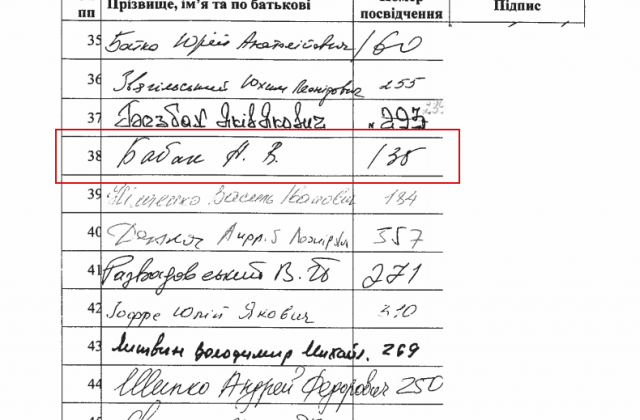 пп Прізвище, ім’я та по батькові посвідчення Підпис
35 Бойко Юрій Анатолійович 160
36 Звягільський Юхим Леонідович 255
37 293
38 Бабак А. В. 138
39 Василь Іванович 184
40 357
41 Развадовський В. 271
42 Іоффе Юлій Якович 310
43 Литвин Володимир Михайл. 269
44 Шипко Андрей Федорович 250